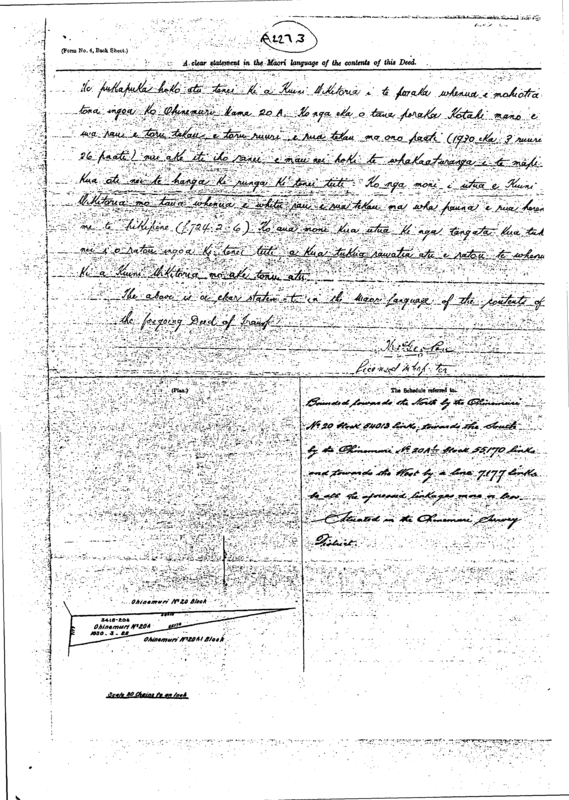 A227.3
(Form No. 4, Back Sheet.)
A clear statement in the Maori language of the contents of this Deed.
He pukapuka hoko atu tenei ki a Kuini Wikitoria i te poraka whenua e mohiotia
tona ingoa ko Ohinemuri Nama 20 A. Ko nga eka o taua poraka Kotahi mano e
iwa rau e toru tekau e toru ruuri e rua tekau ma ono paati (1930 eka 3 ruuri
26 paati) nui ake iti iho ranei e mau nei hoki te whakaaturanga i te mapi
Kua oti nei te hanga ki runga ki tenei tiiti. Ko nga moni i utua e Kuini
Wikitoria mo taua whenua e whitu rau e rua tekau ma wha pauna e rua hereni
me te hikipene (£724.2.6) Ko aua moni Kua utua ki nga tangata Kua
nei i o ratou ingoa ki tenei tiiti a Kua tukua rawatia atu e ratou te whenua
ki a Kuini Wikitoria mo ake tonu atu.
The above is a clear statement in the Maori language of the contents of
the foregoing Deed of
Licensed
(Plan.)
The Schedule referred to.
Bounded towards the North by the Ohinemuri
No 20 Block 54013 links, towards the South
by the Ohinemuri No 20A1 Block 55170 links
and towards the West by a line 7177 links
be all the aforesaid linkages more or less.
Situated in the Ohinemuri Survey
District.
Ohinemuri No 20 Block
Ohinemuri No 20A
Ohinemuri No 20A1 Block
Scale 80 Chains to an Inch